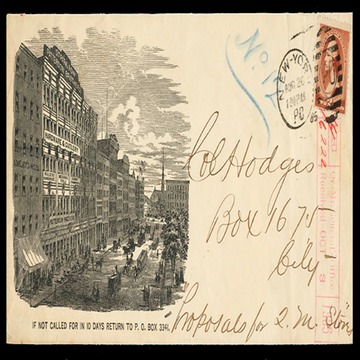 No 17
NEW-YORK
AUG 26
130PM
85
Col Hodges
Box 1671
City
IF NOT CALLED FOR IN 10 DAYS RETURN TO P. O. BOX 3341,
Proposals for Q. M. Stores